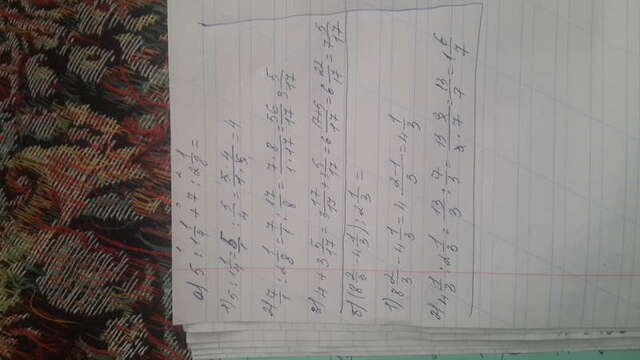 1 3 2
а) 5 : 1 1/4 + 7 : 2 1/8 =
1) 5 : 1 1/4 = 5/1 : 5/4 = 5·4/1·5 = 4
2) 7/1 : 2 1/8 = 7/1 : 17/8 = 7·8/1·17 = 56/17 3 5/17
3) 4 + 3 5/17 = 3 17/17 + 3 5/17 = 6 17+5/17 = 6 22/17 = 7 5/17
б) (8 2/3 - 4 1/3) : 2 1/3 =
1) 8 2/3 - 4 1/3 = 4 2-1/3 = 4 1/3
2) 4 1/3 : 2 1/3 = 13/3 : 7/3 = 13·3/3·7 = 13/7 = 1 6/7